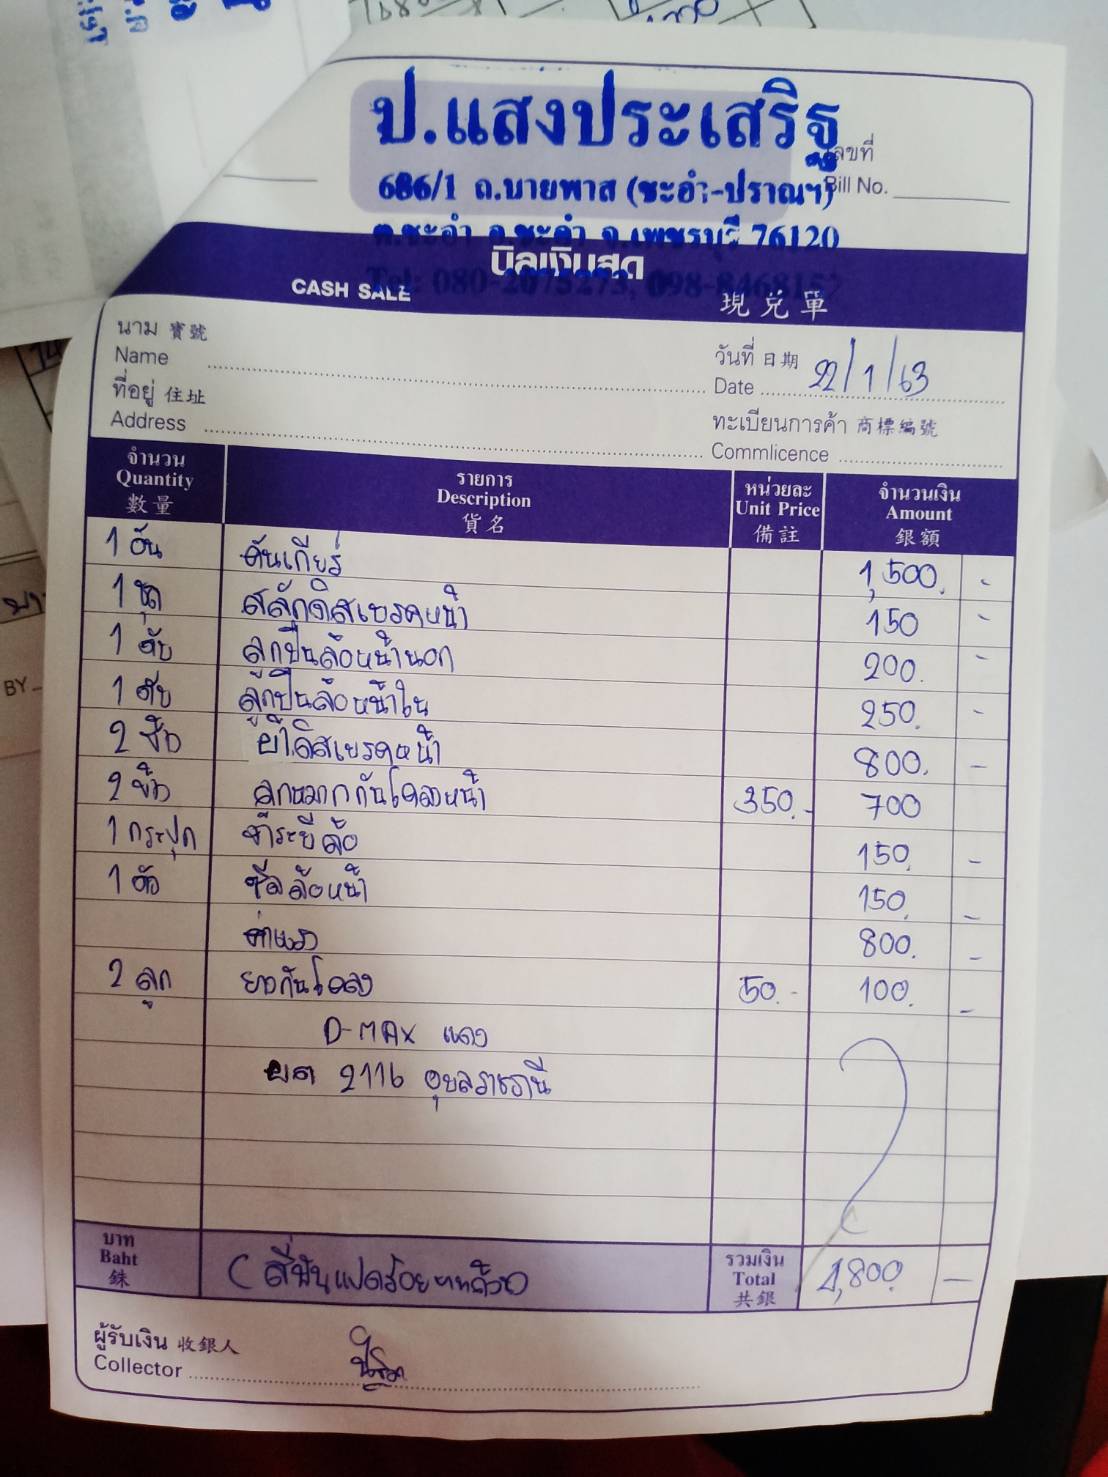 ป.แสงประเสริฐ
เลขที่
686/1 ถ.บายพาส (ชะอำ-ปราณฯ)
Bill No.
ต.ชะอำ อ.ชะอำ จ.เพชรบุรี 76120
บิลเงินสด
Tel: 080-2075273, 098-846815
CASH SALE
現兌單
นาม 寶號
Name
วันที่ 日期
Date 22/1/63
ที่อยู่ 住址
Address
ทะเบียนการค้า 商標編號
Commlicence
จำนวน รายการ หน่วยละ จำนวนเงิน
Quantity Description Unit Price Amount
數量 貨名 備註 銀額
1 อัน คันเกียร์ 1,500.-
1 ชุด สลักดิสเบรคหน้า 150 -
1 ตับ ลูกปืนล้อหน้านอก 200.-
1 ตับ ลูกปืนล้อหน้าใน 250.-
2 ชิ้น ผ้าดิสเบรคหน้า 800.-
2 ลูกหมากกันโคลงหน้า 350.- 700
1 กระปุก จาระบีล้อ 150.-
1 ตัว ซีลล้อหน้า 150.-
ค่าแรง 800.-
2 ลูก ยางกันโคลง 50.- 100.-
D-MAX แดง
ยต 2116 อุบลราชธานี
บาท
Baht
銖
(สี่พันแปดร้อยบาทถ้วน)
รวมเงิน
Total
共銀
4,800.-
ผู้รับเงิน 收銀人
Collector